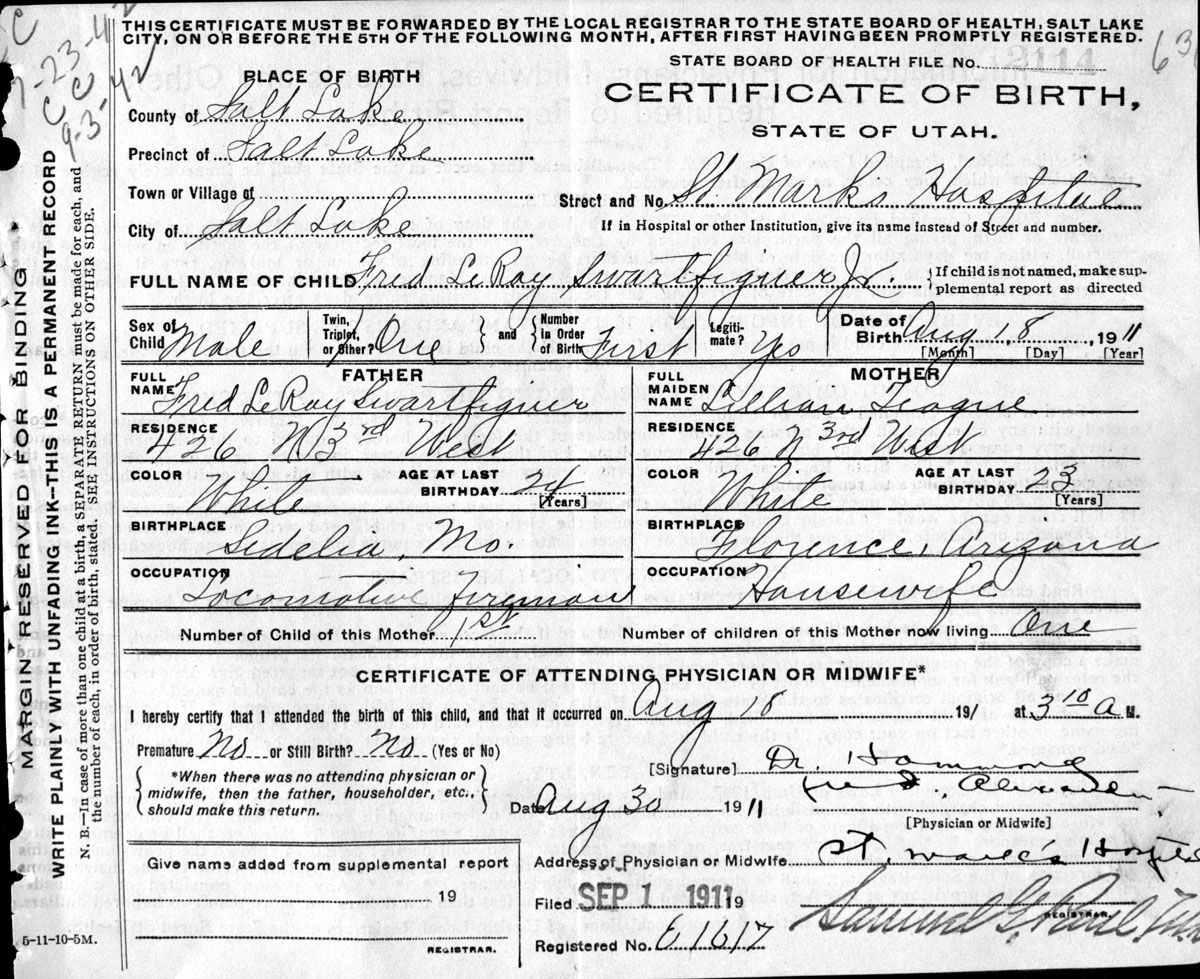 THIS CERTIFICATE MUST BE FORWARDED BY THE LOCAL REGISTRAR TO THE STATE BOARD OF HEALTH, SALT LAKE
CITY, ON OR BEFORE THE 5TH OF THE FOLLOWING MONTH, AFTER FIRST HAVING BEEN PROMPTLY REGISTERED.
STATE BOARD OF HEALTH FILE No. 2114
PLACE OF BIRTH
CERTIFICATE OF BIRTH,
STATE OF UTAH.
County of Salt Lake
Precinct of Salt Lake
Town or Village of
Street and No. St. Mark's Hospital
City of Salt Lake
If in Hospital or other Institution, give its name instead of Street and number.
FULL NAME OF CHILD Fred LeRoy Swartfiguer Jr. {If child is not named, make sup-
plemental report as directed
Sex of Child Male
Twin, Triplet, or Other? One } and { Number in Order of Birth First
Legiti-mate? Yes
Date of Birth Aug 18, 1911
[Month] [Day] [Year]
FATHER
FULL NAME Fred LeRoy Swartfiguer
RESIDENCE 426 N 3rd West
COLOR White AGE AT LAST BIRTHDAY 24 [Years]
BIRTHPLACE Sedelia, Mo.
OCCUPATION Locomotive Fireman
MOTHER
FULL MAIDEN NAME Lillian Teague
RESIDENCE 426 N 3rd West
COLOR White AGE AT LAST BIRTHDAY 23 [Years]
BIRTHPLACE Florence, Arizona
OCCUPATION Housewife
Number of Child of this Mother 1st Number of children of this Mother now living One
CERTIFICATE OF ATTENDING PHYSICIAN OR MIDWIFE*
I hereby certify that I attended the birth of this child, and that it occurred on Aug 18 191 at 3 10 A M.
Premature No or Still Birth? No (Yes or No)
{ *When there was no attending physician or
midwife, then the father, householder, etc.,
should make this return. }
[Signature] Dr. Hammond
Alexander
Date Aug 30 1911
[Physician or Midwife]
Give name added from supplemental report
19
REGISTRAR.
Address of Physician or Midwife St. Mark's Hospital
Filed SEP 1 1911 19
REGISTRAR.
Registered No. 61617
5-11-10-5M.
MARGIN RESERVED FOR BINDING
WRITE PLAINLY WITH UNFADING INK--THIS IS A PERMANENT RECORD
N. B.—In case of more than one child at a birth, a SEPARATE RETURN must be made for each, and
the number of each, in order of birth, stated. SEE INSTRUCTIONS ON OTHER SIDE.
CC
9-3-42